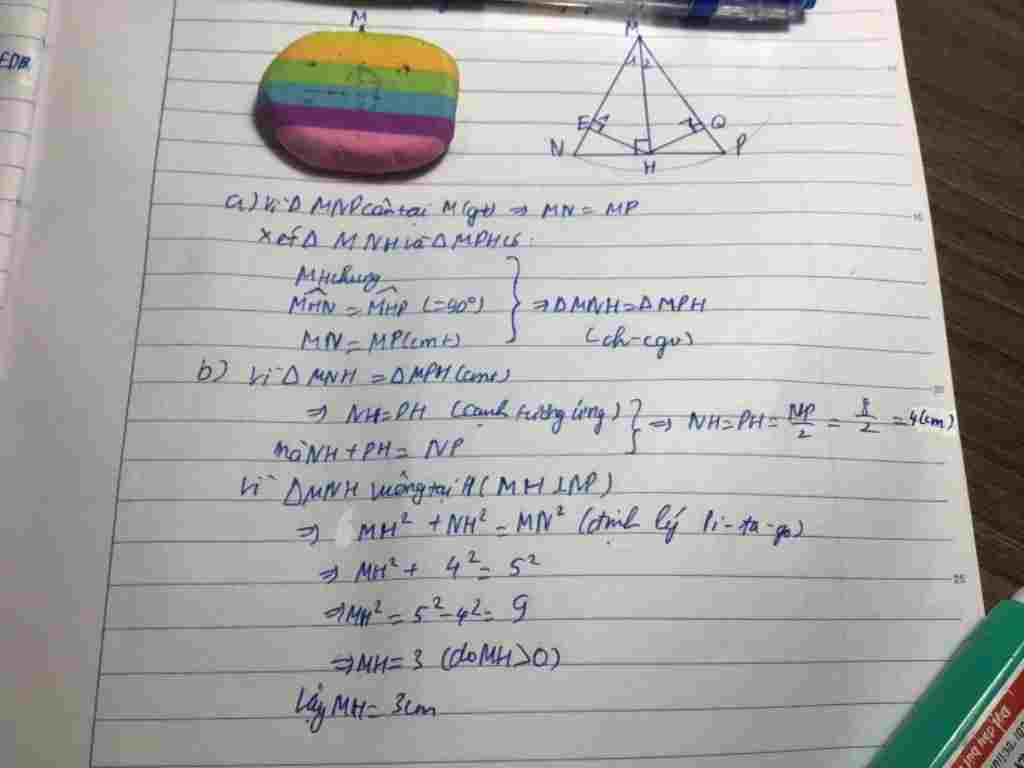 EDB
M
M
1 2
E
Q
N
H
P
a) Vì Δ MNP cân tại M (gt) ⇒ MN = MP
Xét Δ MNH và Δ MPH có:
MH chung
MHN = MHP (=90°)
MN = MP (cmt)
⇒ ΔMNH = ΔMPH
(ch-cgv)
b) Vì Δ MNH = ΔMPH (cmt)
⇒ NH = PH (cạnh tương ứng)
mà NH + PH = NP
⇒ NH = PH = NP/2 = 8/2 = 4(cm)
Vì ΔMNH vuông tại H (MH ⊥ NP)
⇒ MH² + NH² = MN² (định lý Pi-ta-go)
⇒ MH² + 4² = 5²
⇒ MH² = 5² - 4² = 9
⇒ MH = 3 (do MH > 0)
Vậy MH = 3cm
15
20
25